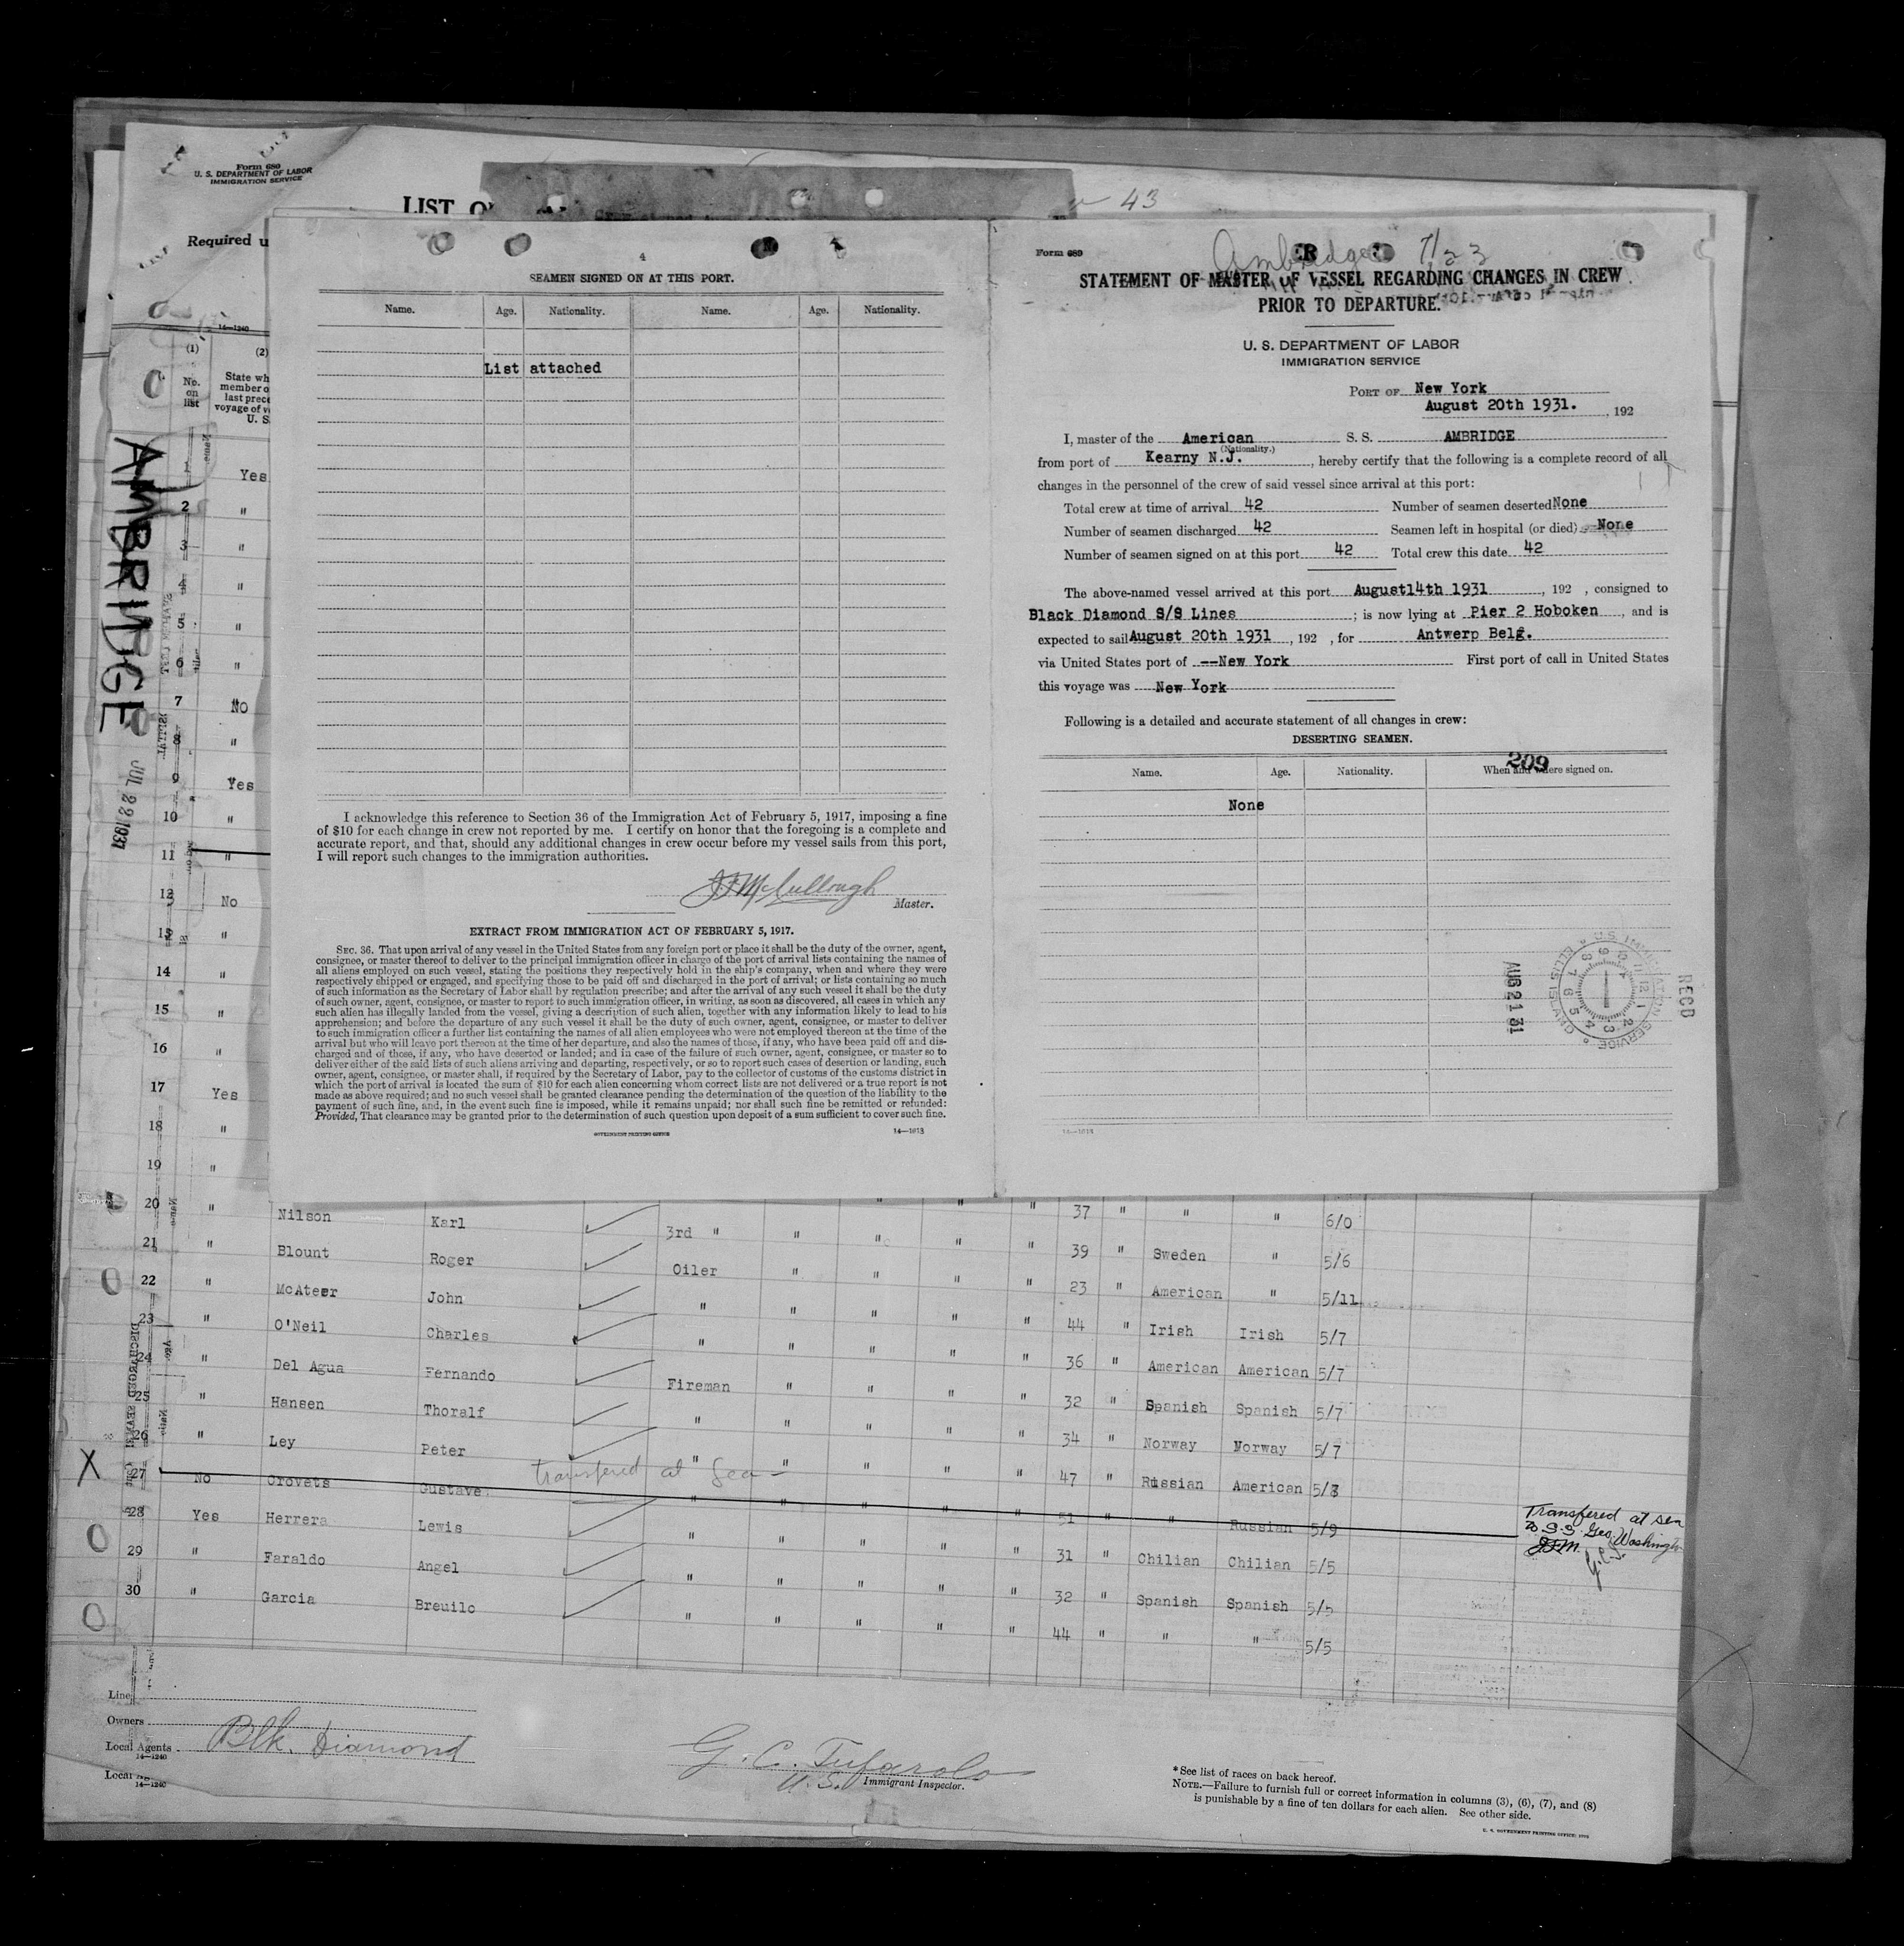 Form 680
U. S. DEPARTMENT OF LABOR
IMMIGRATION SERVICE
LIST O
43
Required u
14—1240
(1)
(2)
No.
on
list
State wh
member o
last prece
voyage of v
U. S
AMBRIDGE
JUL 22 1931
Yes
2 "
3 "
4 "
5 "
6 "
7 No
8 "
9 Yes
10 "
11 "
12 No
13 "
14 "
15 "
16 "
17 Yes
18 "
19 "
4
SEAMEN SIGNED ON AT THIS PORT.
Name. Age. Nationality. Name. Age. Nationality.
List attached
I acknowledge this reference to Section 36 of the Immigration Act of February 5, 1917, imposing a fine
of $10 for each change in crew not reported by me. I certify on honor that the foregoing is a complete and
accurate report, and that, should any additional changes in crew occur before my vessel sails from this port,
I will report such changes to the immigration authorities.
J F McCullough
Master.
EXTRACT FROM IMMIGRATION ACT OF FEBRUARY 5, 1917.
SEC. 36. That upon arrival of any vessel in the United States from any foreign port or place it shall be the duty of the owner, agent,
consignee, or master thereof to deliver to the principal immigration officer in charge of the port of arrival lists containing the names of
all aliens employed on such vessel, stating the positions they respectively hold in the ship's company, when and where they were
respectively shipped or engaged, and specifying those to be paid off and discharged in the port of arrival; or lists containing so much
of such information as the Secretary of Labor shall by regulation prescribe; and after the arrival of any such vessel it shall be the duty
of such owner, agent, consignee, or master to report to such immigration officer, in writing, as soon as discovered, all cases in which any
such alien has illegally landed from the vessel, giving a description of such alien, together with any information likely to lead to his
apprehension; and before the departure of any such vessel it shall be the duty of such owner, agent, consignee, or master to deliver
to such immigration officer a further list containing the names of all alien employees who were not employed thereon at the time of the
arrival but who will leave port thereon at the time of her departure, and also the names of those, if any, who have been paid off and dis-
charged and of those, if any, who have deserted or landed; and in case of the failure of such owner, agent, consignee, or master so to
deliver either of the said lists of such aliens arriving and departing, respectively, or so to report such cases of desertion or landing, such
owner, agent, consignee, or master shall, if required by the Secretary of Labor, pay to the collector of customs of the customs district in
which the port of arrival is located the sum of $10 for each alien concerning whom correct lists are not delivered or a true report is not
made as above required; and no such vessel shall be granted clearance pending the determination of the question of the liability to the
payment of such fine, and, in the event such fine is imposed, while it remains unpaid; nor shall such fine be remitted or refunded:
Provided, That clearance may be granted prior to the determination of such question upon deposit of a sum sufficient to cover such fine.
GOVERNMENT PRINTING OFFICE 14—1913
Form 689
Ambridge 7/23
STATEMENT OF MASTER OF VESSEL REGARDING CHANGES IN CREW
PRIOR TO DEPARTURE.
U. S. DEPARTMENT OF LABOR
IMMIGRATION SERVICE
PORT OF New York
August 20th 1931. , 192
I, master of the American S. S. AMBRIDGE
(Nationality.)
from port of Kearny N.J. , hereby certify that the following is a complete record of all
changes in the personnel of the crew of said vessel since arrival at this port:
Total crew at time of arrival 42 Number of seamen deserted None
Number of seamen discharged 42 Seamen left in hospital (or died) None
Number of seamen signed on at this port 42 Total crew this date 42
The above-named vessel arrived at this port August14th 1931 , 192 , consigned to
Black Diamond S/S Lines ; is now lying at Pier 2 Hoboken , and is
expected to sail August 20th 1931 , 192 , for Antwerp Belg.
via United States port of --New York First port of call in United States
this voyage was New York
Following is a detailed and accurate statement of all changes in crew:
DESERTING SEAMEN.
209
Name. Age. Nationality. When and where signed on.
None
AUG 21 31
U.S. IMMIGRATION SERVICE
ELLIS ISLAND
RECD
14—1913
20 " Nilson Karl 3rd " " " " " 37 " " " 6/0
21 " Blount Roger Oiler " " " " 39 " Sweden " 5/6
22 " McAteer John " " " " " 23 " American " 5/11
23 " O'Neil Charles " " " " " 44 " Irish Irish 5/7
24 " Del Agua Fernando Fireman " " " " 36 " American American 5/7
25 " Hansen Thoralf " " " " " 32 " Spanish Spanish 5/7
26 " Ley Peter " " " " " 34 " Norway Norway 5/7
X 27 No Crovets Gustave transfered at Sea — " " " " 47 " Russian American 5/8
28 Yes Herrera Lewis " " " " " 51 " " Russian 5/9
Transfered at sea
to S.S. Geo. Washington
J.F.M. G.C.T.
29 " Faraldo Angel " " " " " 31 " Chilian Chilian 5/5
30 " Garcia Breuilo " " " " " 32 " Spanish Spanish 5/5
" " " " " 44 " " " 5/5
DISCHARGED SEAMEN
Line
Owners
Local Agents Blk. Diamond
14—1240
Local
14—1240
G. C. Tufarolo
U.S. Immigrant Inspector.
* See list of races on back hereof.
NOTE.—Failure to furnish full or correct information in columns (3), (6), (7), and (8)
is punishable by a fine of ten dollars for each alien. See other side.